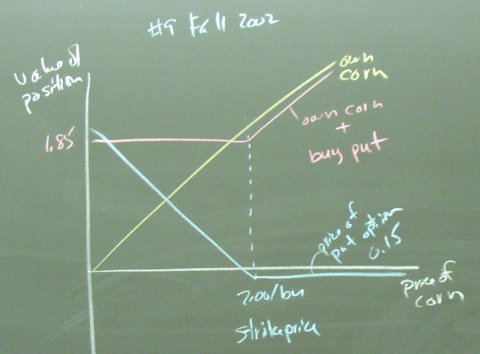 #9 Fall 2002
value of
position
own
corn
1.85
own corn
+
buy put
price of
put option
0.15
2.00/bu
strike price
price of
corn